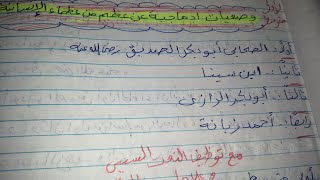 وضعيات ادماجية عن عظيم من عظماء الإنسانية
أولا: الصحابي أبو بكر الصديق رضي الله عنه
ثانيا: ابن سينا
ثالثا: أبو بكر الرازي
رابعا: أحمد زبانة
مع توظيف النعت السببي